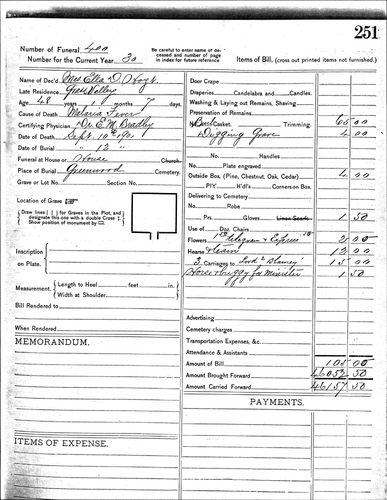 251
Number of Funeral 400
Number for the Current Year 30
Be careful to enter name of deceased and number of page in index for future reference
Items of Bill, (cross out printed items not furnished.)
Name of Dec'd. Mrs Ella D. Vogt.
Late Residence Grass Valley
Age, 48 years 1 months 7 days.
Cause of Death Malaria Fever
Certifying Physician Dr. E. M. Bradley
Date of Death Sept. 10th 1901
Date of Burial " 12 "
Funeral at House or House Church.
Place of Burial Greenwood Cemetery.
Grave or Lot No. Section No.
Location of Grave
Draw lines for Graves in the Plot, and designate this one with a double Cross Show position of monument by
Inscription on Plate.
Measurement. Length to Heel feet in.
Width at Shoulder in.
Bill Rendered to
When Rendered
MEMORANDUM.
ITEMS OF EXPENSE.
Door Crape
Draperies Candelabra and Candles.
Washing & Laying out Remains, Shaving
Preservation of Remains
Burl Casket. Trimming. 65 00
Digging Grave 4 00
No. Handles
Plate engraved
Outside Box, (Pine, Chestnut, Oak, Cedar) 4 00
PIY H'dl's Corners on Box.
Delivering to Cemetery
No. Robe
Prs. Gloves Linen Scarfs 1 50
Use of Doz. Chairs
Flowers 1.50 telegram & Express 2 00
Hearse & team 12 00
3 Carriages to 15 00
Horse & buggy for Minister 1 50
Advertising
Cemetery charges
Transportation Expenses, &c.
Attendance & Assistants
Amount of Bill 105 00
Amount Brought Forward 46052 50
Amount Carried Forward 46157 50
PAYMENTS.